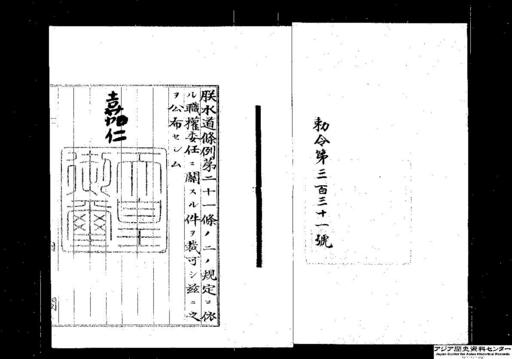 勅令第三百三十一號
朕水道條例第二十一條ノ二ノ規定ニ依
ル職權委任ニ關スル件ヲ裁可シ玆ニ之
ヲ公布セシム
嘉仁
天皇
御璽
アジア歴史資料センター
Japan Center for Asian Historical Records